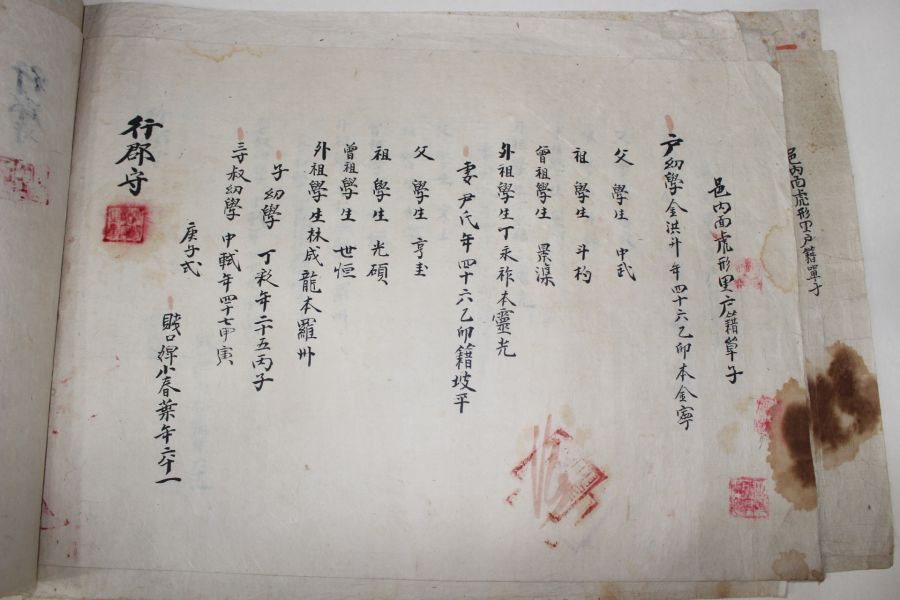 邑內面虎形里戶籍單子
邑內面虎形里戶籍單子
戶幼學金洪升年四十六乙卯本金寧
父學生中武
祖學生斗杓
曾祖學生景湜
外祖學生丁永祚本靈光
妻尹氏年四十六乙卯籍坡平
父學生亨圭
祖學生光碩
曾祖學生世恒
外祖學生林成龍本羅州
子幼學丁彩年二十五丙子
三寸叔幼學中軾年四十七甲寅
賤口婢小春葉年六十一
庚子式
行郡守